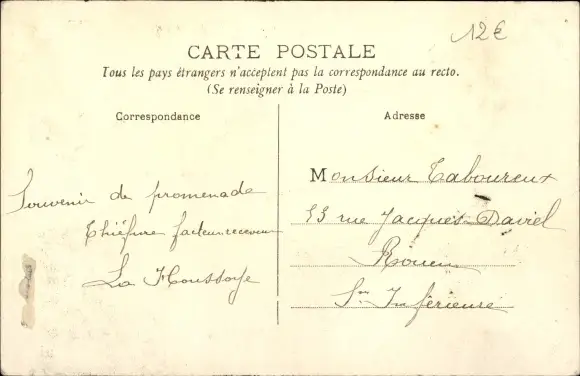 12€
CARTE POSTALE
Tous les pays étrangers n'acceptent pas la correspondance au recto.
(Se renseigner à la Poste)
Correspondance
Adresse
Souvenir de promenade
facteur receveur
La Houssaye
Monsieur Taboureux
53 rue Jacques Daviel
Rouen
Sne Inférieure